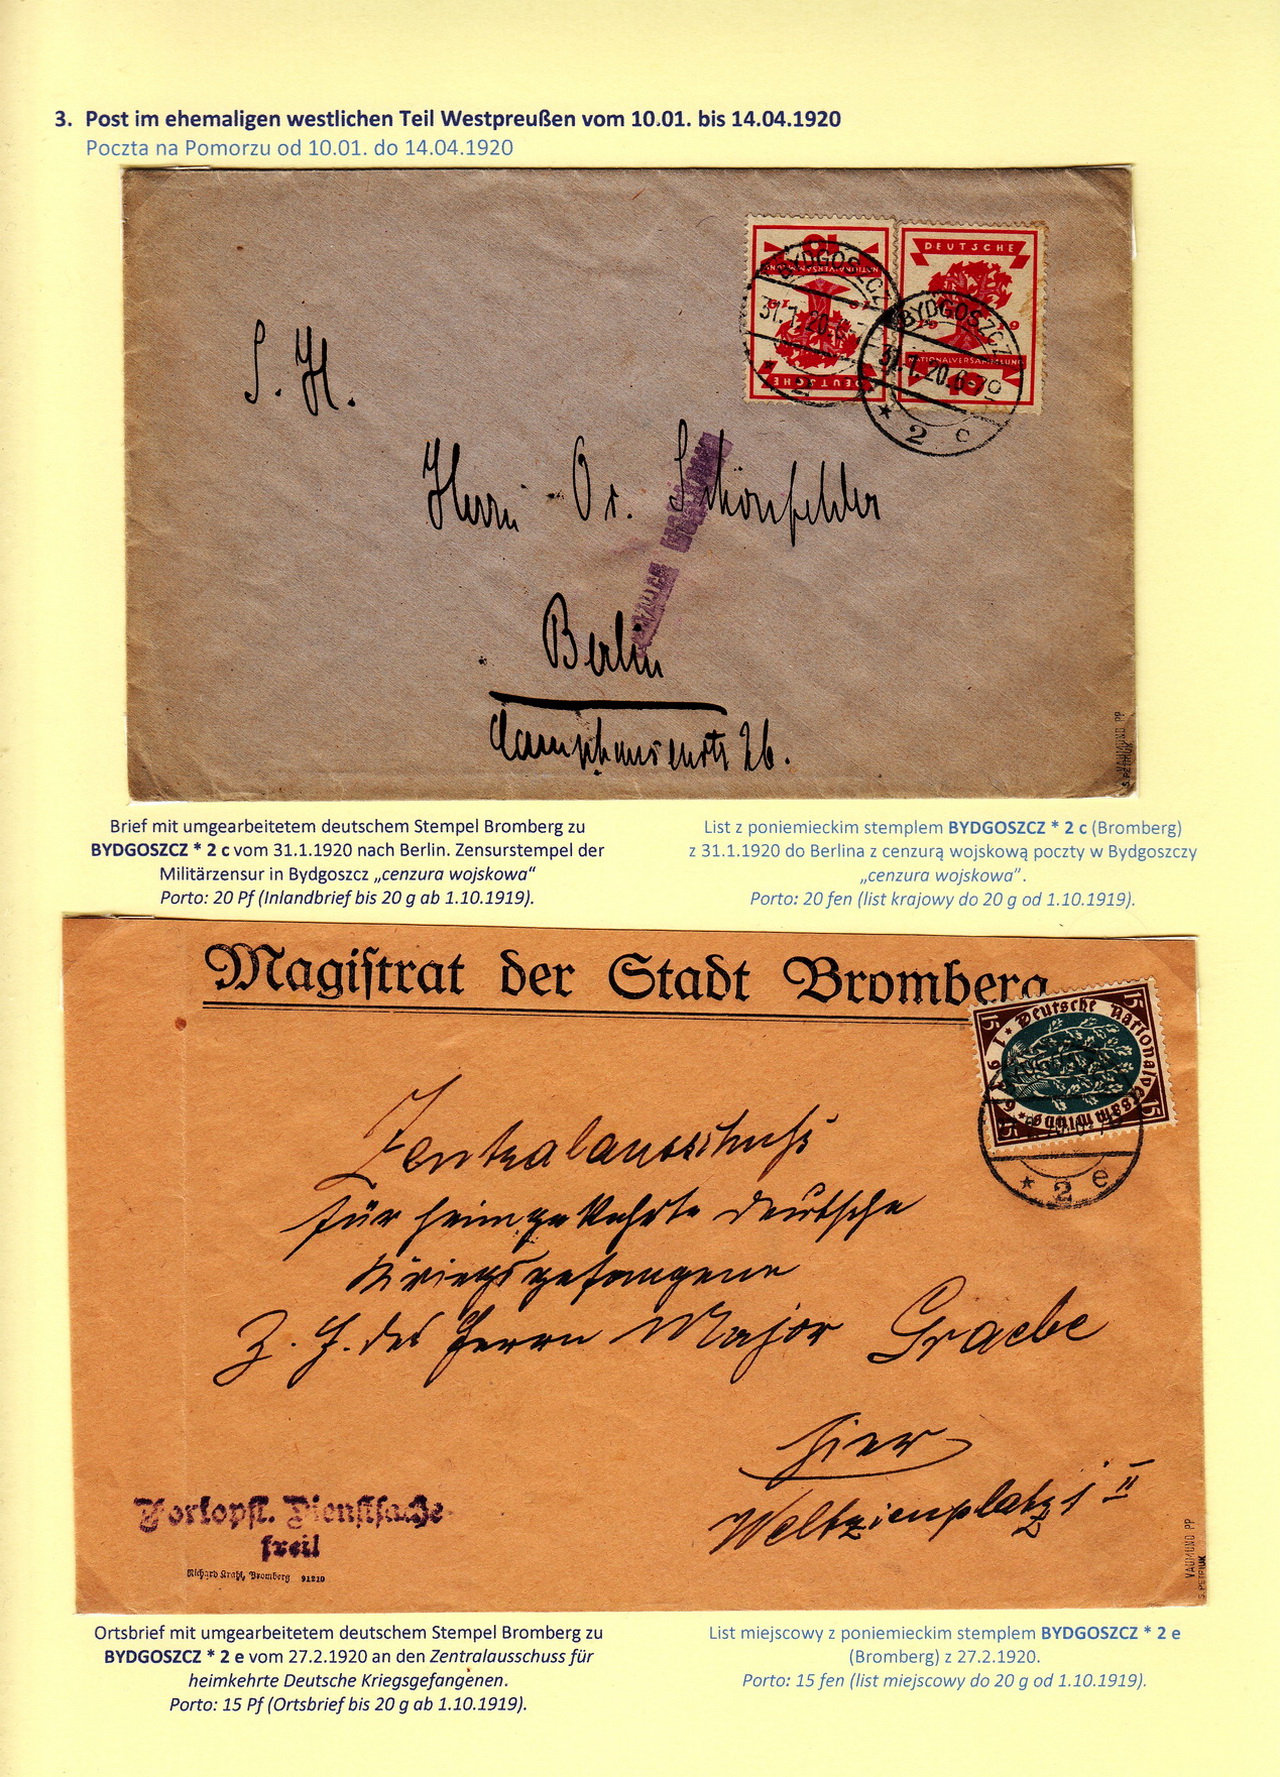 3. Post im ehemaligen westlichen Teil Westpreußen vom 10.01. bis 14.04.1920
Poczta na Pomorzu od 10.01. do 14.04.1920
10
NATIONALVERSAMMLUNG
1919
DEUTSCHE
DEUTSCHE
1919
NATIONALVERSAMMLUNG
10
BYDGOSZCZ
31.1.20.6-7
* 2
BYDGOSZCZ
31.1.20.6-7
* 2 c
S. H.
Herrn Dr. Schönfelder
Berlin
26.
VAUMUND PP
S. PETRIUK
Brief mit umgearbeitetem deutschem Stempel Bromberg zu
BYDGOSZCZ * 2 c vom 31.1.1920 nach Berlin. Zensurstempel der
Militärzensur in Bydgoszcz „cenzura wojskowa“
Porto: 20 Pf (Inlandbrief bis 20 g ab 1.10.1919).
List z poniemieckim stemplem BYDGOSZCZ * 2 c (Bromberg)
z 31.1.1920 do Berlina z cenzurą wojskową poczty w Bydgoszczy
„cenzura wojskowa”.
Porto: 20 fen (list krajowy do 20 g od 1.10.1919).
Magistrat der Stadt Bromberg
15 Deutsche Nationalversammlung 1919
* 2 e
Zentralausschuß
für heimgekehrte deutsche
Kriegsgefangene
z. H. des Herrn Major Graebe
hier
Weltzienplatz 1 II
Portopfl. Dienstsache
freil
Richard Krahl, Bromberg 91210
VAUMUND PP
S. PETRIUK
Ortsbrief mit umgearbeitetem deutschem Stempel Bromberg zu
BYDGOSZCZ * 2 e vom 27.2.1920 an den Zentralausschuss für
heimkehrte Deutsche Kriegsgefangenen.
Porto: 15 Pf (Ortsbrief bis 20 g ab 1.10.1919).
List miejscowy z poniemieckim stemplem BYDGOSZCZ * 2 e
(Bromberg) z 27.2.1920.
Porto: 15 fen (list miejscowy do 20 g od 1.10.1919).